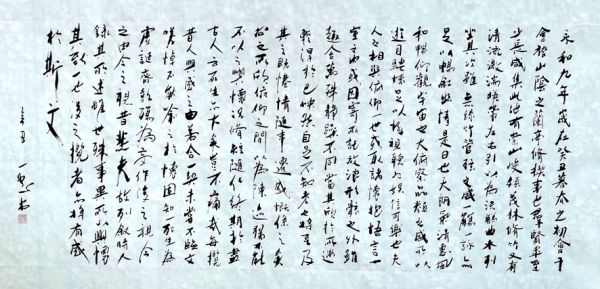 永和九年歲在癸丑暮春之初會于
會稽山陰之蘭亭修禊事也群賢畢至
少長咸集此地有崇山峻領茂林修竹又有
清流激湍暎帶左右引以為流觴曲水列
坐其次雖無絲竹管弦之盛一觴一詠亦
足以暢敘幽情是日也天朗氣清惠風
和暢仰觀宇宙之大俯察品類之盛所以
遊目騁懷足以極視聽之娛信可樂也夫
人之相與俯仰一世或取諸懷抱悟言一
室之內或因寄所託放浪形骸之外雖
趣舍萬殊靜躁不同當其欣於所遇
暫得於己快然自足不知老之將至及
其所之既惓情隨事遷感慨係之矣
向之所欣俯仰之間以為陳迹猶不能
不以之興懷況脩短隨化終期於盡
古人云死生亦大矣豈不痛哉每攬
昔人興感之由若合一契未嘗不臨文
嗟悼不能喻之於懷固知一死生為
虛誕齊彭殤為妄作後之視今
亦由今之視昔悲夫故列敘時人
錄其所述雖世殊事異所以興懷
其致一也後之攬者亦將有感
於斯文
辛丑 一 書